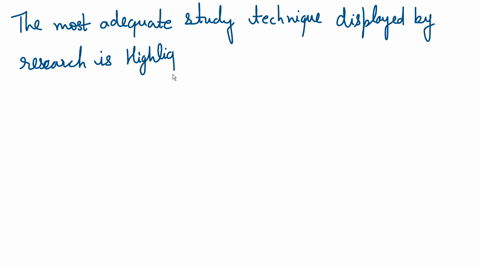 The most adequate study technique displayed by
research is Highlig